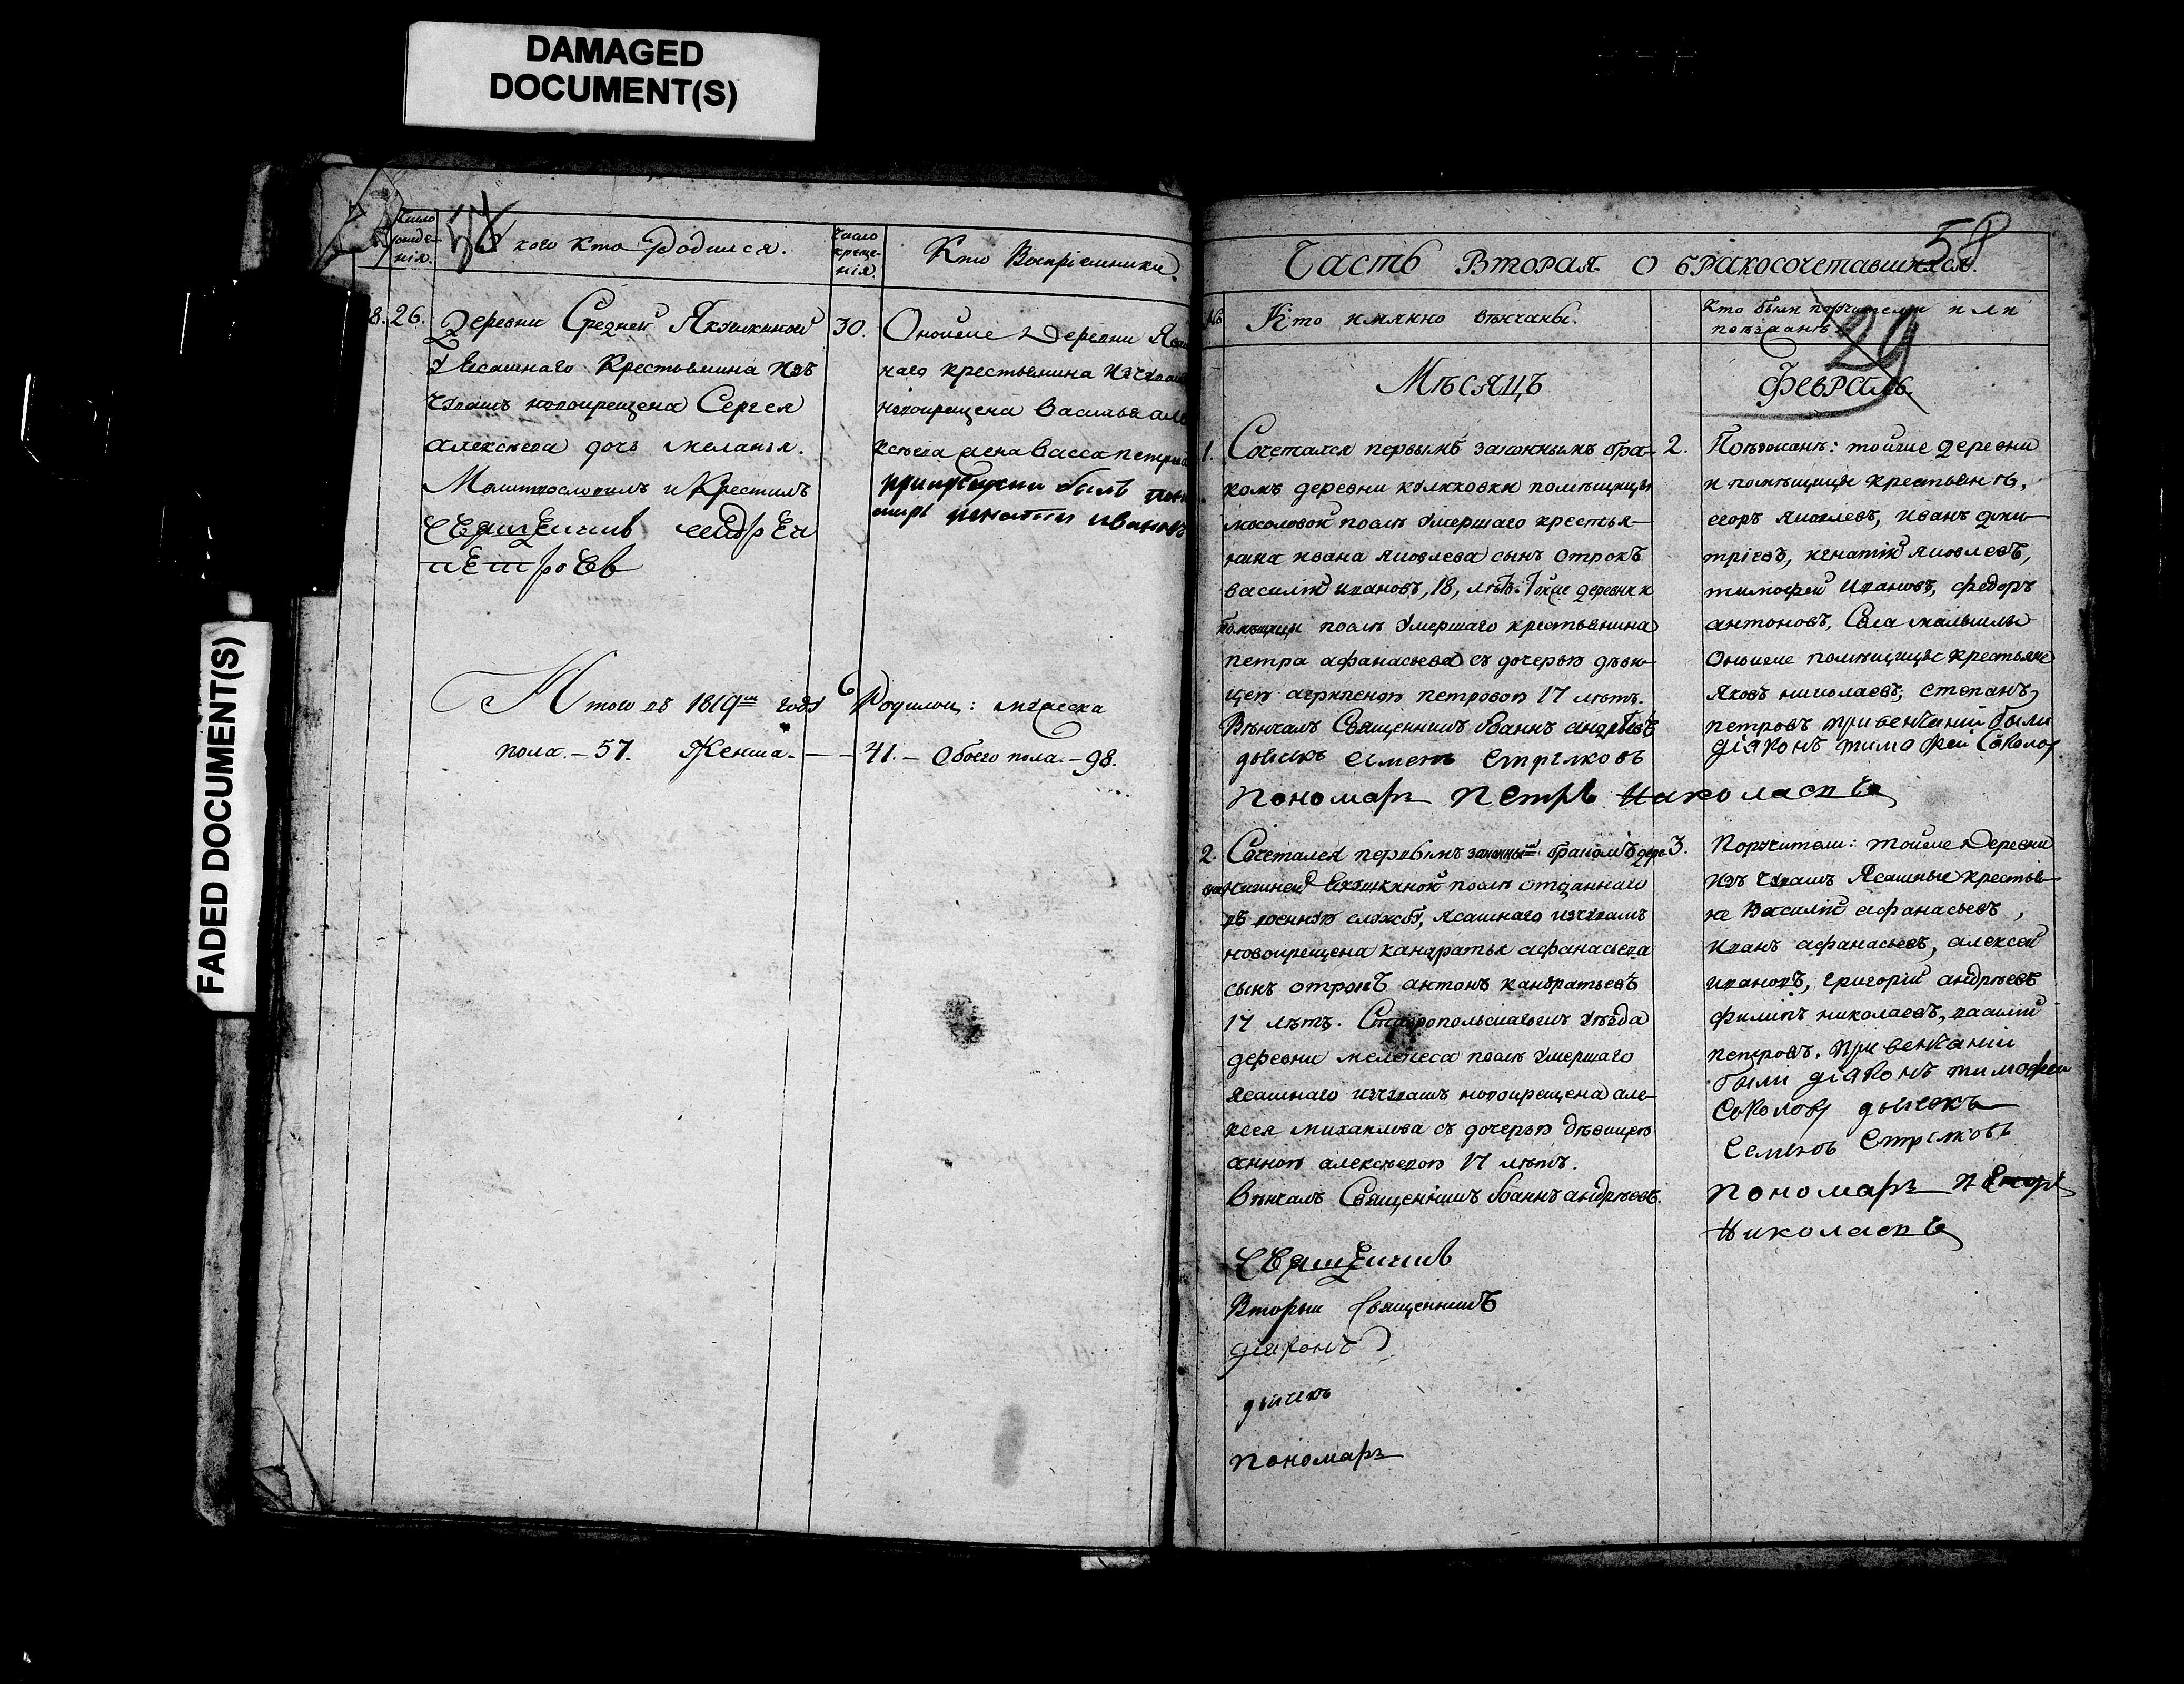 DAMAGED
DOCUMENT(S)
FADED DOCUMENT(S)
Число рожде-
нія.
У кого кто Родился.
Число
креще-
нія.
Кто Воспріемники.
8. 26.
Деревни Средней Якушкиной
у Ясашнаго Крестьянина изъ
Чувашъ новокрещена Сергея
алексѣева дочь меланья.
Молитвословилъ и Крестилъ
Священникъ андрей
петровъ
30.
Оной же Деревни Яса
наго крестьянина изчуваш
новокрещена василья але
ксѣева жена васса петрова
прикрещении былъ поно
марь игнатий ивановъ
Итого въ 1819м году Родилось: мужеска
пола. – 57. Женска. – – 41. – Обоего пола. – 98.
58
Часть Вторая о бракосочетавшихся.
№
Кто имянно вѣнчаны.
Кто были поручители или
поѣзжанѣ.
29
Мѣсяцъ
Февраль.
1. Сочетался первымъ законнымъ бра-
комъ деревни куликовки помѣщицы
мосоловой послѣ умершаго крестья-
нина ивана яковлева сынъ отрокъ
василій ивановъ, 18, лѣтъ. Тойже деревни и
помѣщицы послѣ умершаго крестьянина
петра афанасьева съ дочерью дѣви-
цею агрипеною петровою 17 лѣтъ.
Вѣнчалъ Священникъ Іоаннъ андрѣевъ
дьячекъ семенъ стрѣлковъ
пономарь петръ николаевъ
2.
Поѣзжанъ: тойже деревни
и помѣщицы крестьянѣ,
егоръ яковлевъ, иванъ дми-
тріевъ, игнатій яковлевъ,
тимофей ивановъ, федоръ
антоновъ, Села малыклы
Оной же помѣщицы крестьяне
яковъ николаевъ, степанъ
петровъ при венчаніи были
діаконъ тимофей Соколов
2. Сочетался первымъ законнымъ бракомъ дере-
вни нижней Якушкиной послѣ отданнаго
въ военную службу, ясашнаго изчувашъ
новокрещена кандратья афанасьева
сынъ отрокъ антонъ кандратьевъ
17 лѣтъ. Ставропольскагожъ уѣзда
деревни мелекеса послѣ умершаго
ясашнаго изчувашъ новокрещена але-
ксея михаилова съ дочерью дѣвицею
анною алексѣевою 17 лѣтъ.
Вѣнчалъ Священникъ Іоаннъ андрѣевъ.
3.
Поручители: тойже Деревни
изъ чувашъ Ясашные крестья-
не Василій афанасьевъ,
иванъ афанасьевъ, алексей
ивановъ, григорій андрѣевъ
филипъ николаевъ, василій
петровъ. при венчаніи
были діаконъ тимофеи
Соколов дьячекъ
Семенъ Стрѣлковъ
пономарь петръ
николаевъ
Священникъ
Вторыи Священникъ
діаконъ
дьячекъ
пономарь